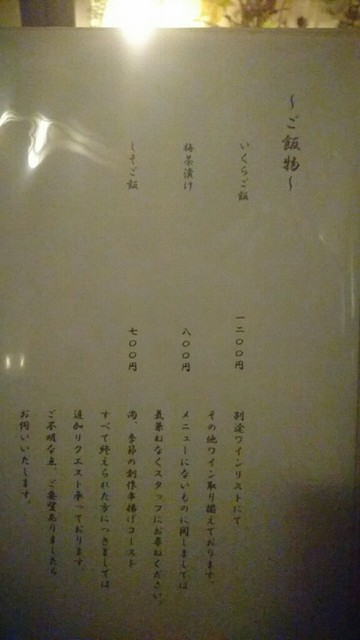 ～ご飯物～
いくらご飯 一二〇〇円
梅茶漬け 八〇〇円
しそご飯 七〇〇円
別途ワインリストにて
その他ワイン取り揃えております。
メニューにないものに関しましては
気兼ねなくスタッフにお尋ねください。
尚、季節の創作串揚げコースト
すべて終えられた方につきましては
追加リクエスト承っております。
ご不明な点、ご要望ありましたら
お伺いいたします。